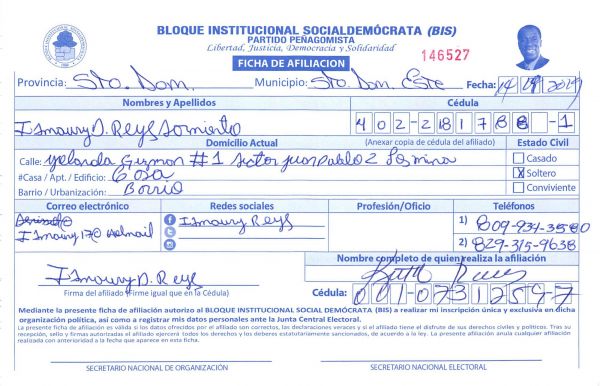 BLOQUE INSTITUCIONAL SOCIALDEMÓCRATA (BIS)
PARTIDO PEÑAGOMISTA
Libertad, Justicia, Democracia y Solidaridad
FICHA DE AFILIACION
146527
Provincia: Sto. Dom. Municipio: Sto. Dom. Este Fecha: 14
Nombres y Apellidos Cédula
Ismaury D. Reys Sormiento 402-2218178 -1
Domicilio Actual (Anexar copia de cédula del afiliado) Estado Civil
Calle: yolanda Guzmon #1 sector juan pablo 2 Casado
#Casa / Apt. / Edificio: Casa X Soltero
Barrio / Urbanización: Borrio Conviviente
Correo electrónico Redes sociales Profesión/Oficio Teléfonos
Ismaury Reys 1) 809-934-3580
Ismaury17@hotmail 2) 829-315-9638
Nombre completo de quien realiza la afiliación
Ismaury D. Reys
Firma del afiliado (Firme igual que en la Cédula) Cédula: 001-0731259-7
Mediante la presente ficha de afiliación autorizo al BLOQUE INSTITUCIONAL SOCIAL DEMÓCRATA (BIS) a realizar mi inscripción única y exclusiva en dicha
organización política, así como a registrar mis datos personales ante la Junta Central Electoral.
La presente ficha de afiliación es válida si los datos ofrecidos por el afiliado son correctos, las declaraciones veraces y si el afiliado tiene el disfrute de sus derechos civiles y políticos. Tras su
recepción, sello y firmas autorizadas el afiliado ejercerá todos los derechos y los deberes estatutariamente sancionados, de acuerdo a la ley. La presente afiliación anula cualquier afiliación
realizada con anterioridad a la fecha que aparece en esta ficha.
SECRETARIO NACIONAL DE ORGANIZACIÓN SECRETARIO NACIONAL ELECTORAL